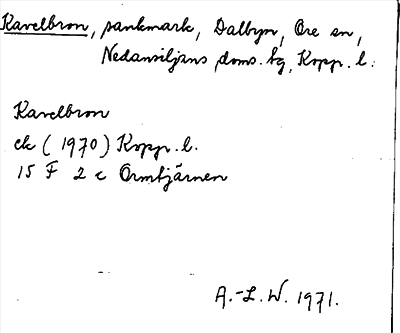 Kavelbron, sankmark, Dalbyn, Ore sn,
Nedansiljans doms. tg, Kopp. l.
Kavelbron
ek (1970) Kopp. l.
15 F 2 c Ormtjärnen
A.-L. W. 1971.